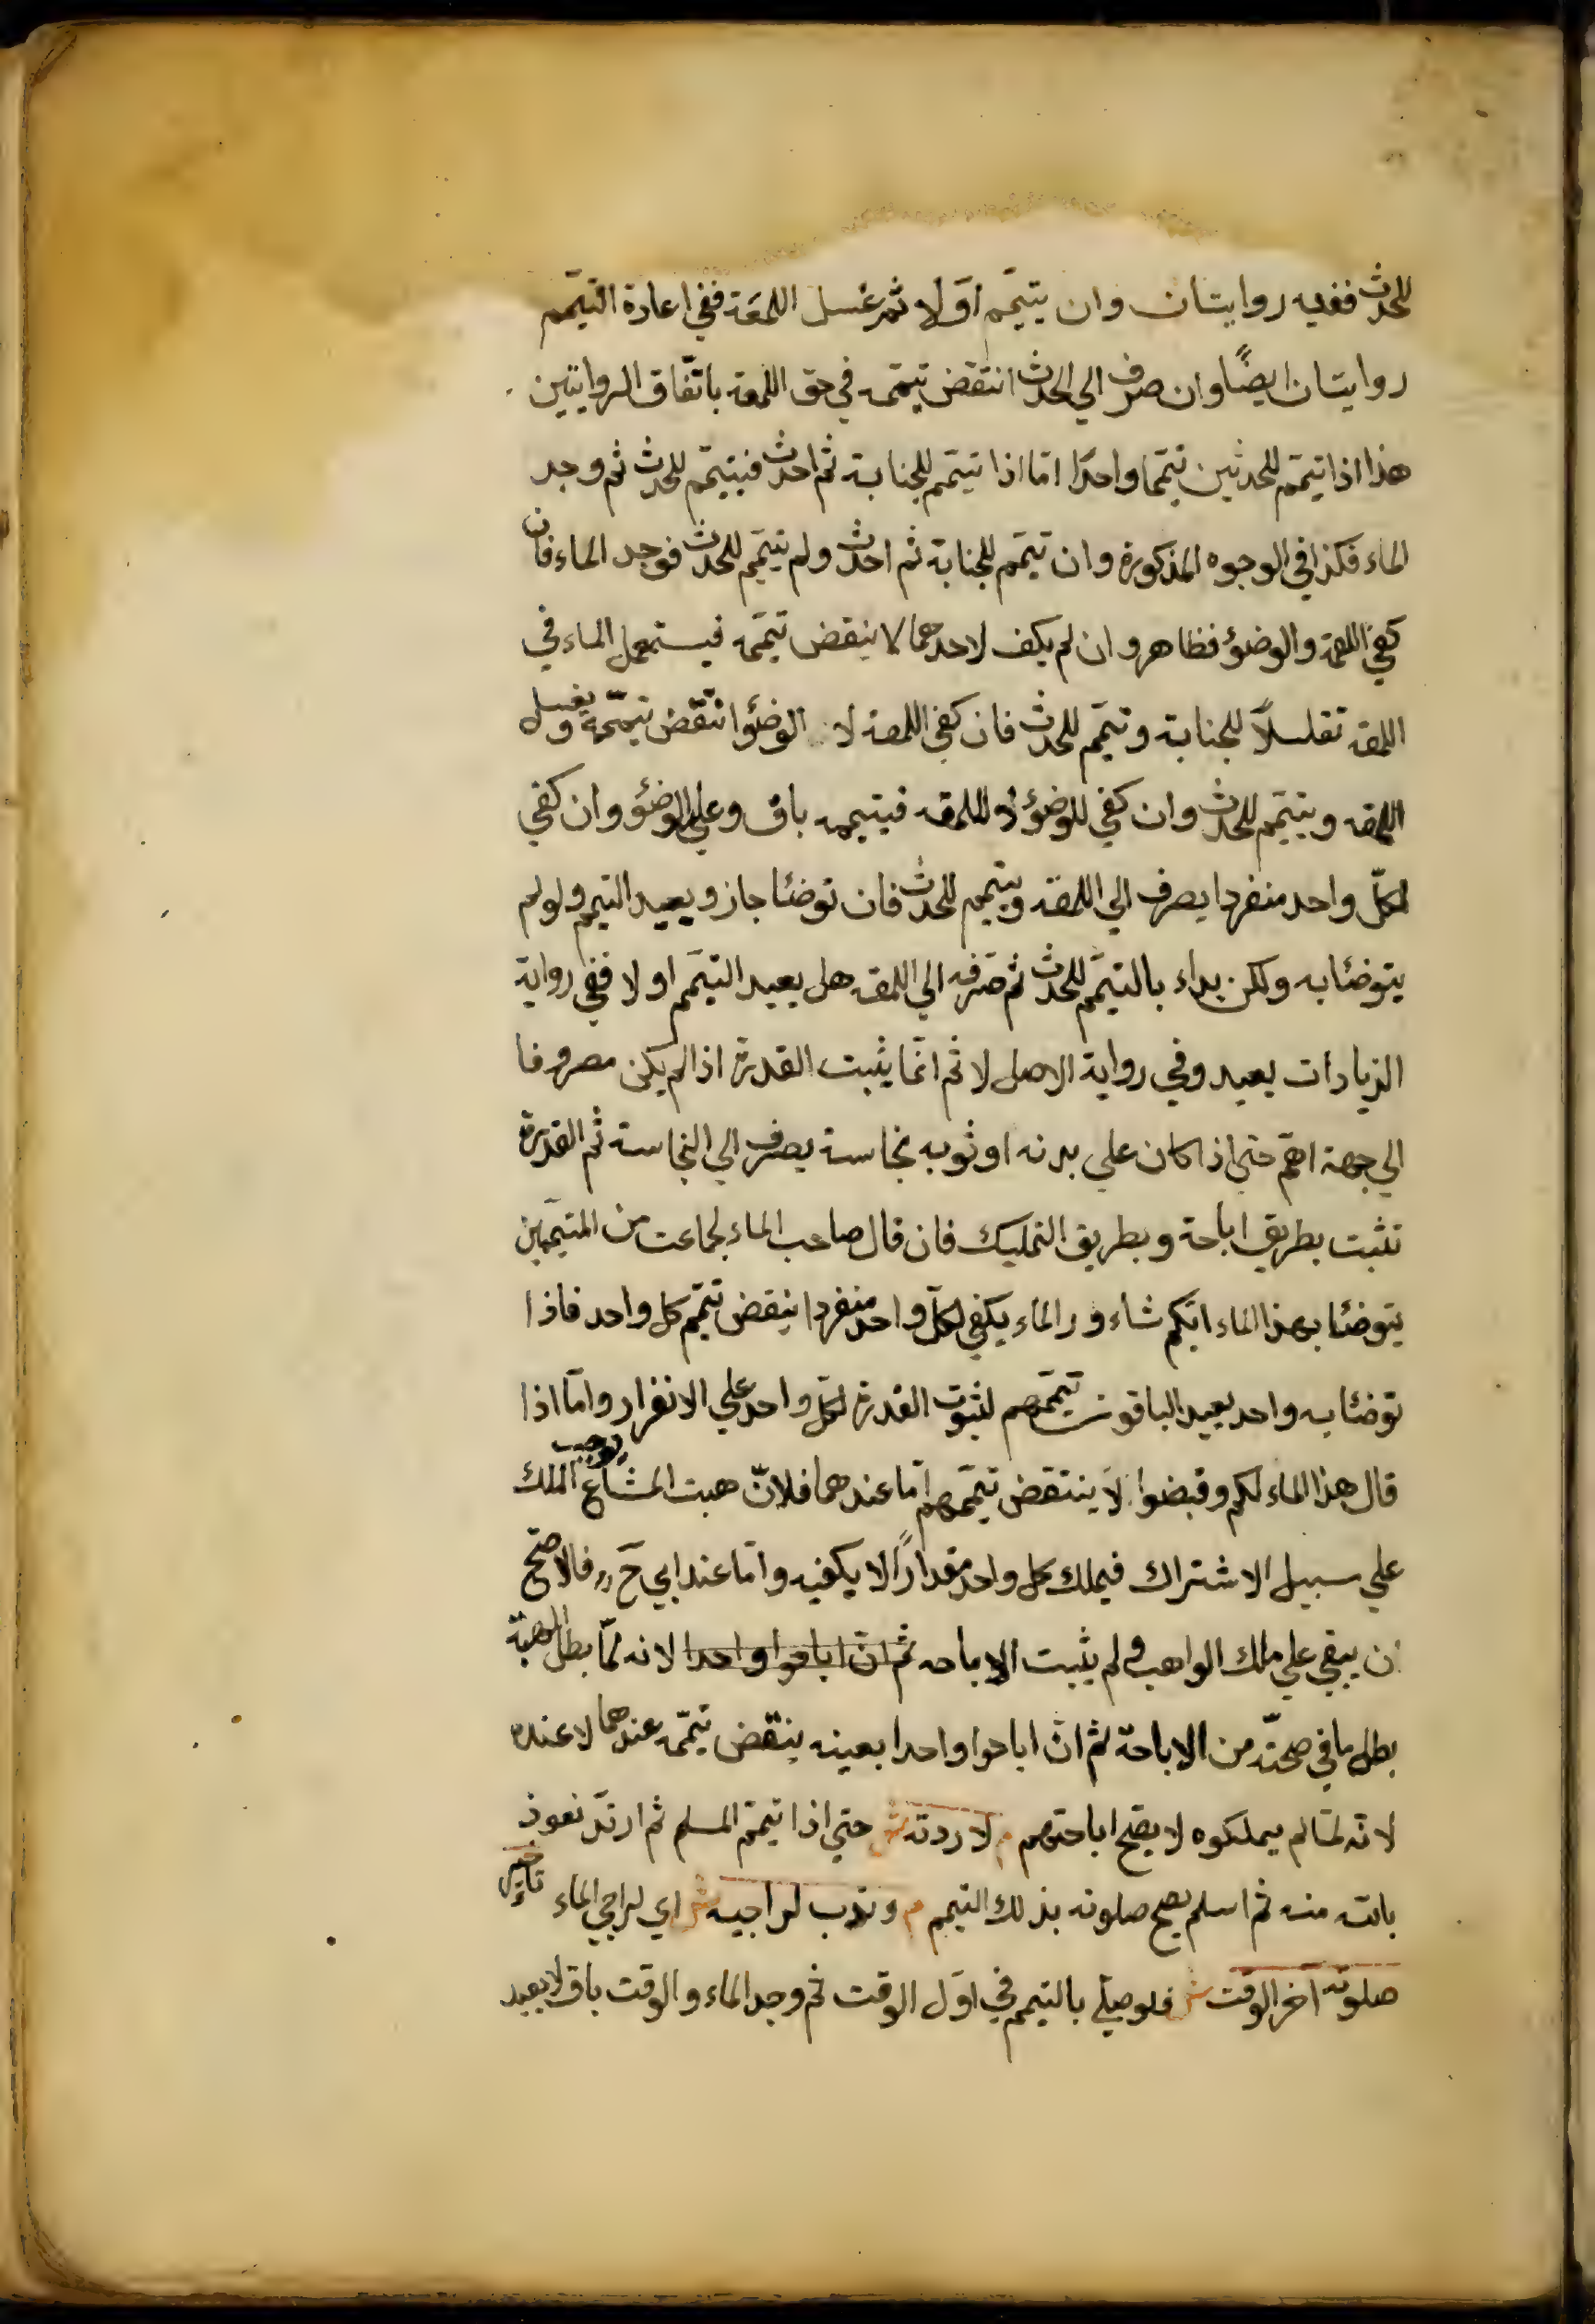 للحدث ففيه روايتان وان يتيمّم اوّلا ثم غسل اللمعَة ففي اعادة التيمّم
روايتان ايضًا وان صرف الي الحدث انتقض تيمّمه في حق اللمعة باتّفاق الروايتين
هذا اذا تيمّم للحدثين تيمّما واحدًا امّا اذا تيمّم للجنابة ثم احدث فيتيمّم للحدث ثم وجد
الماء فكذا في الوجوه المذكورة وان تيمّم للجنابة ثم احدث ولم يتيمّم للحدث فوجد الماء فان
كفي اللمعة والوضوٴ فظاهر وان لم يكف لاحدهما لا ينقض تيمّمه فيستعمل الماء في
اللمعة تقليلاً للجنابة وتيمّم للحدث فان كفي اللمعة لا الوضؤا نتقض تيمّمه ويغسل
اللمعة ويتيمّم للحدث وان كفي للوضوٴ لا للمعة فيتيممه باق وعليه الوضئو وان كفي
لكلّ واحد منفردا يصرف الي اللمعة ويتيمم للحدث فان توضئا جاز ويعيد التيمم ولو لم
يتوضئا به ولكن بداء بالتيمّم للحدث ثم صَرفه الي اللمعة هل يعيد التيمّم او لا ففي رواية
الزيادات يعيد وفي رواية الاصل لا ثم انّما يثبت القدرة اذا لم يكن مصروفا
الي جهة اهمّ حتي اذا كان علي بدنه او ثوبه نجاسة يصرف الي النجاسة ثم القدرة
تثبت بطريق اباحة وبطريق التمليك فان قال صاحب الماء لجماعت من المتيمّمين
يتوضئا بهذا الماء ايّكم شاء ور الماء يكفي لكلّ واحد منفردا ينقض تيمّم كل واحد فاذا
توضئا به واحد يعيد الباقون تيمّمهم لثبوت القدرة لكلّ واحد علي الانفراد وامّا اذا
قال هذا الماء لكم وقبضوا لا ينتقض تيمّمهم امّا عندهما فلانّ هبت المشاع يوجب الملك
علي سبيل الاشتراك فيملك كل واحد مقدارًا لا يكفيه وامّا عند ابي حَ رح فالاصحّ
ان يبقي علي ملك الواهب ولم يثبت الاباحه ثم انّ اباحوا واحدا لانه لمّا بطل الهبة
بطل ما في صحتّه من الاباحة ثم انّ اباحوا واحدا بعينه ينتقض تيمّمه عندهما لا عنده
لانّه لمّا لم يملكوه لا يصّح اباحتهم م لا ردته ش حتي اذا تيمّم المسلم ثم ارتدّ نعوذ
بالله منه ثم اسلم يصح صلوته بذلك التيمم م وندب لراجيه ش اي لراجي الماء تاخير
صلوته آخر الوقت ش فلو صلّي بالتيمم في اوّل الوقت ثم وجد الماء والوقت باق لا يعيد